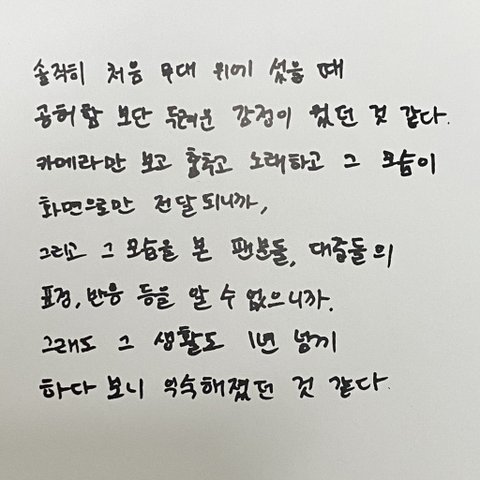 솔직히 처음 무대 위에 섰을 때
공허함 보단 두려운 감정이 컸던 것 같다.
카메라만 보고 춤추고 노래하고 그 모습이
화면으로만 전달되니까,
그리고 그 모습을 본 팬분들, 대중들의
표정, 반응 등을 알 수 없으니까.
그래도 그 생활도 1년 넘게
하다 보니 익숙해졌던 것 같다.